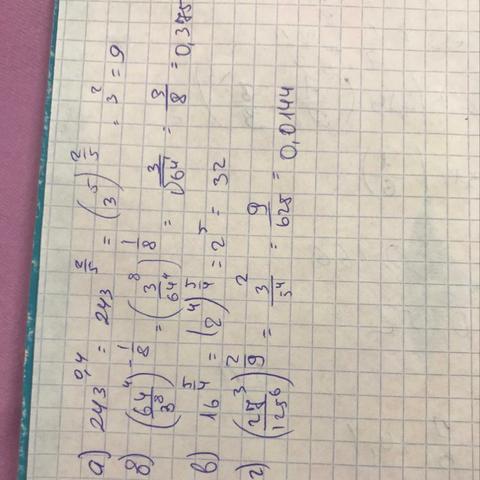 а) 243^{0,4} = 243^{\frac{2}{5}} = (3^5)^{\frac{2}{5}} = 3^2 = 9
б) (\frac{64^4}{3^8})^{-\frac{1}{8}} = (\frac{3^8}{64^4})^{\frac{1}{8}} = \frac{3}{\sqrt{64}} = \frac{3}{8} = 0,375
в) 16^{\frac{5}{4}} = (2^4)^{\frac{5}{4}} = 2^5 = 32
г) (\frac{27^3}{125^6})^{\frac{2}{9}} = \frac{3^2}{5^4} = \frac{9}{625} = 0,0144